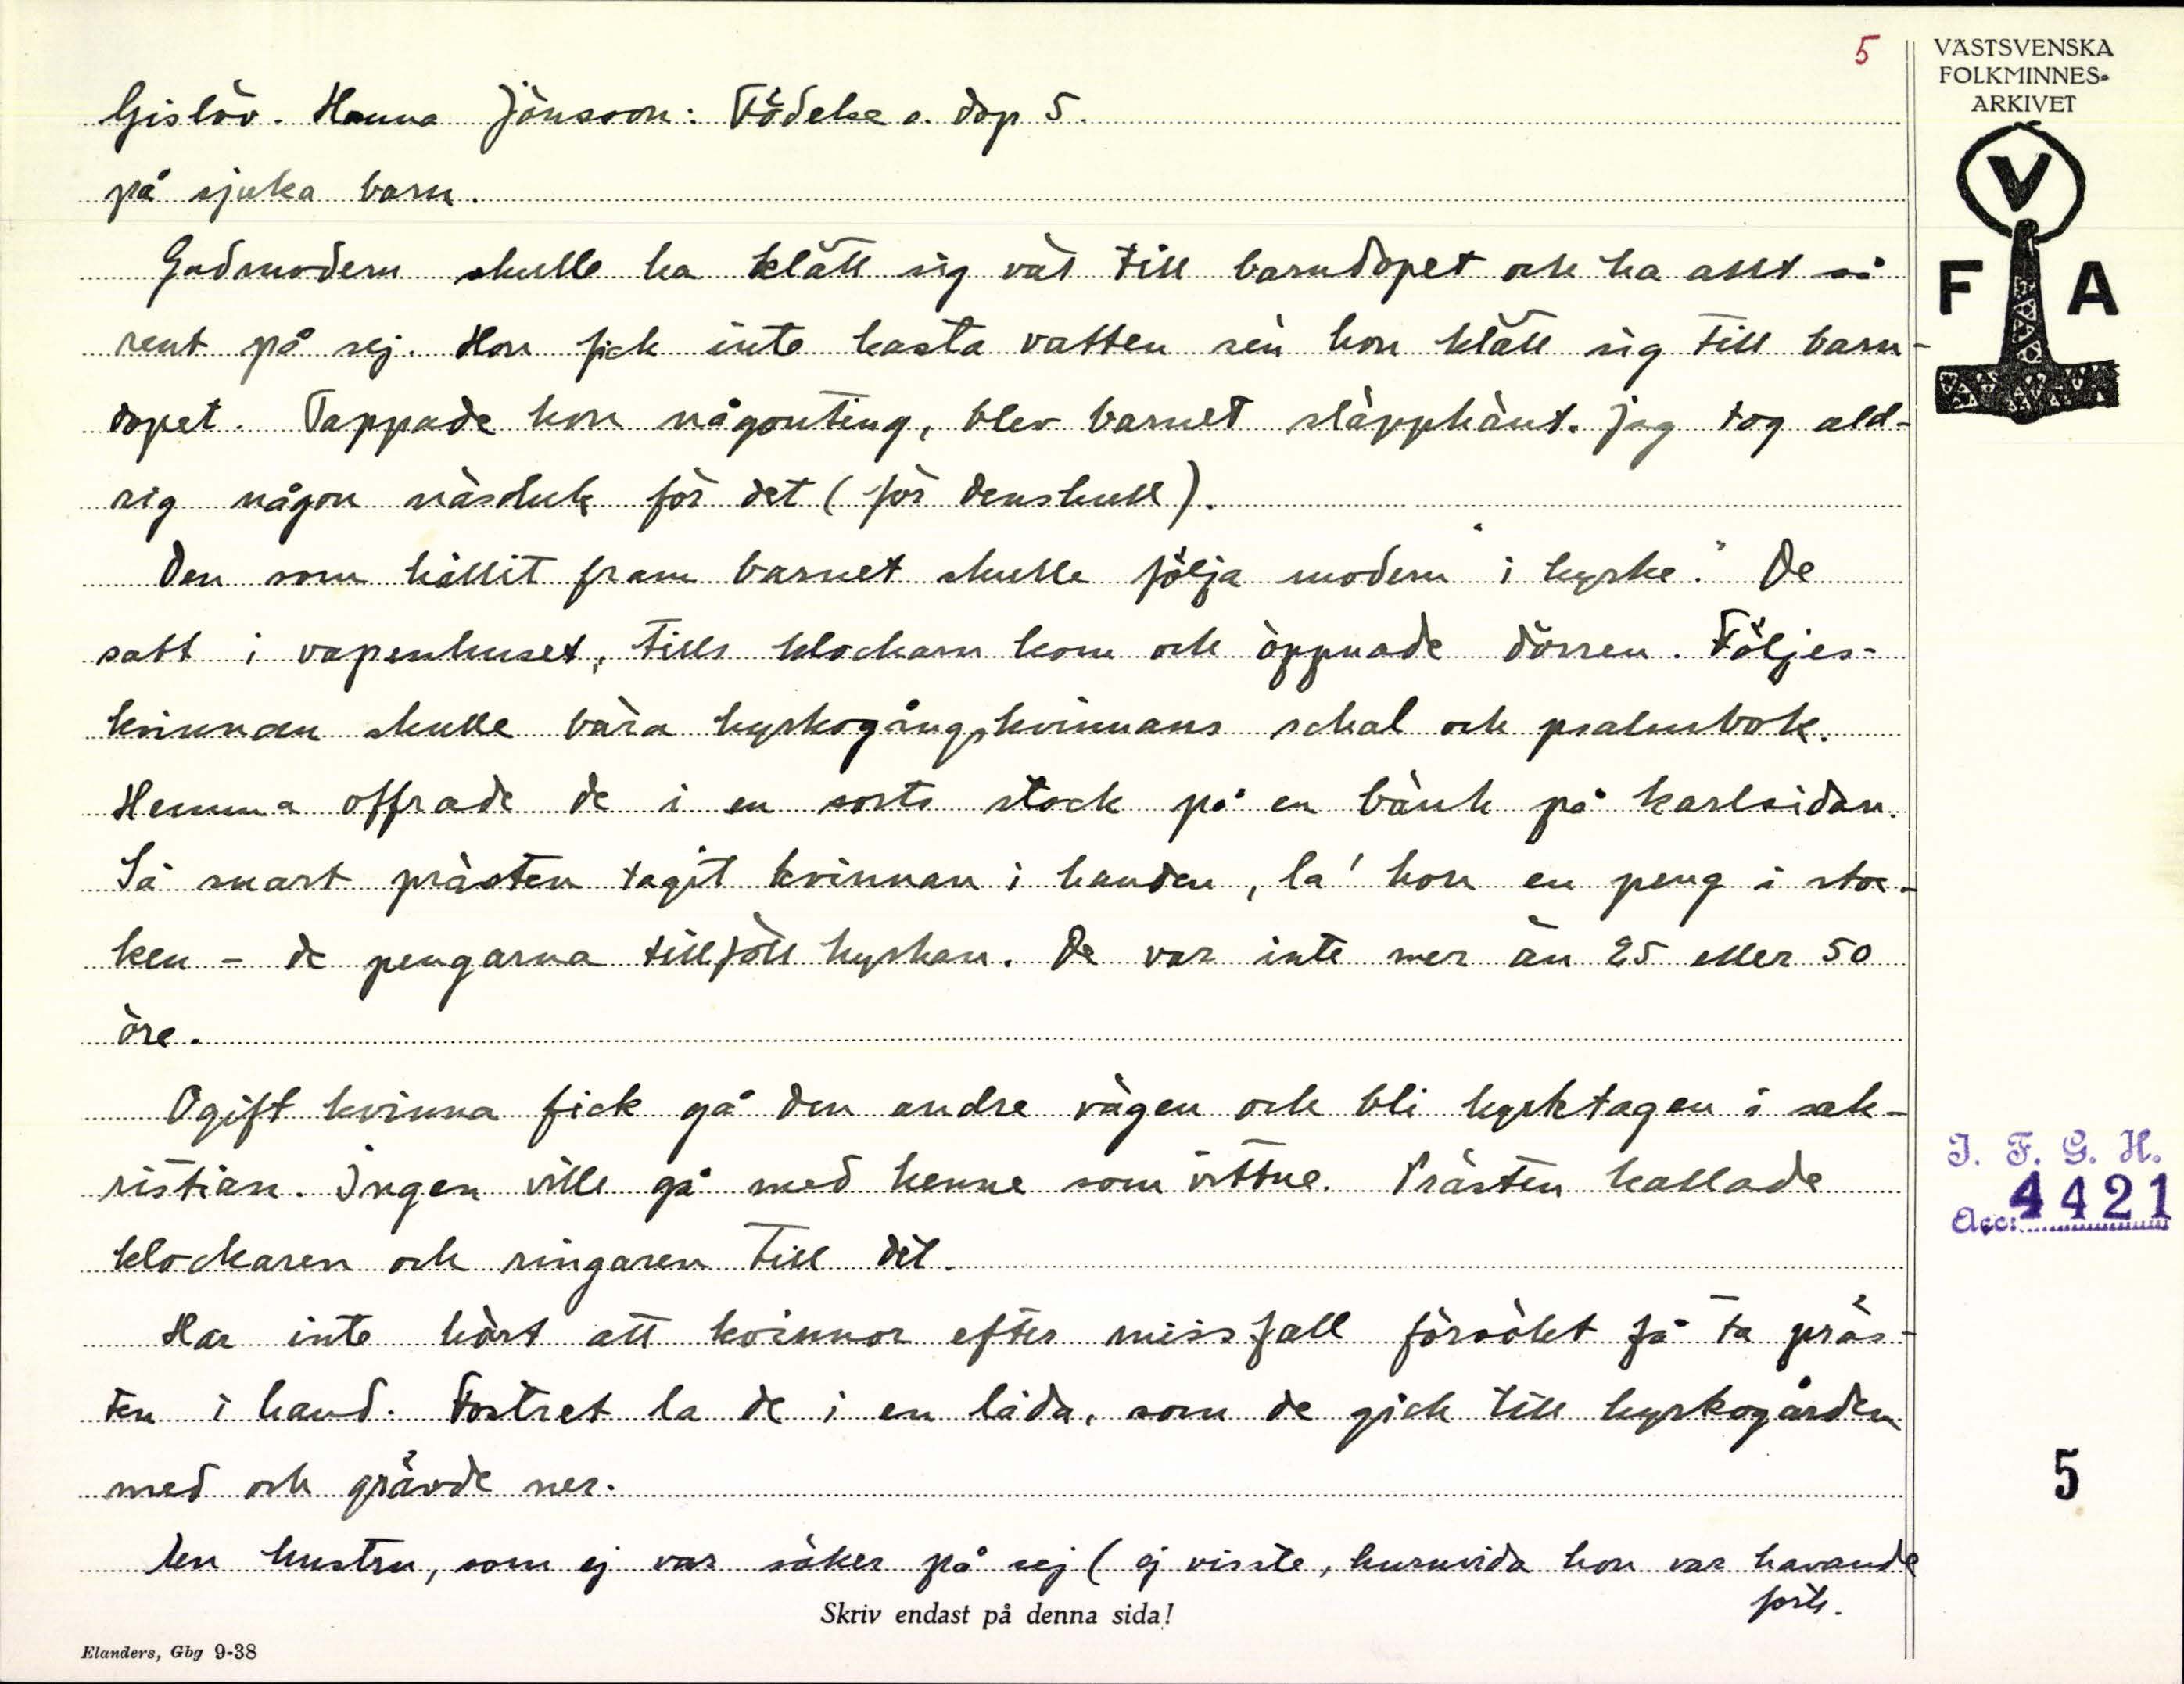 5
VÄSTSVENSKA
FOLKMINNES-
ARKIVET
V
F A
Gislöv. Hanna Jönsson: Födelse o. dop 5.
på sjuka barn.
Gudmodern skulle ha klätt sig väl till barndopet och ha allt så
rent på sej. Hon fick inte kasta vatten sen hon klätt sig till barn-
dopet. Tappade hon någonting, blev barnet släpphänt. Jag tog ald-
rig någon näsduk för det (för denskull).
Den som hållit fram barnet skulle följa modern "i kyrke." De
satt i vapenhuset, tills klockarn kom och öppnade dörren. Följes-
kvinnan skulle bära kyrkogångskvinnans schal och psalmbok.
Hemma offrade de i en sorts stock på en bänk på karlsidan.
Så snart prästen tagit kvinnan i handen, la' hon en peng i stoc-
ken - de pengarna tillföll kyrkan. De var inte mer än 25 eller 50
öre.
Ogift kvinna fick gå den andre vägen och bli kyrktagen i sak-
ristian. Ingen ville gå med henne som vittne. Prästen kallade
klockaren och ringaren till det.
Har inte hört att kvinnor efter missfall försökt få ta präs-
ten i hand. Fostret la de i en låda, som de gick till kyrkogården
med och grävde ner.
Den hustru, som ej var säker på sej (ej visste, huruvida hon var havande
forts.
J. F. G. H.
Acc: 4421
5
Skriv endast på denna sida!
Elanders, Gbg 9-38